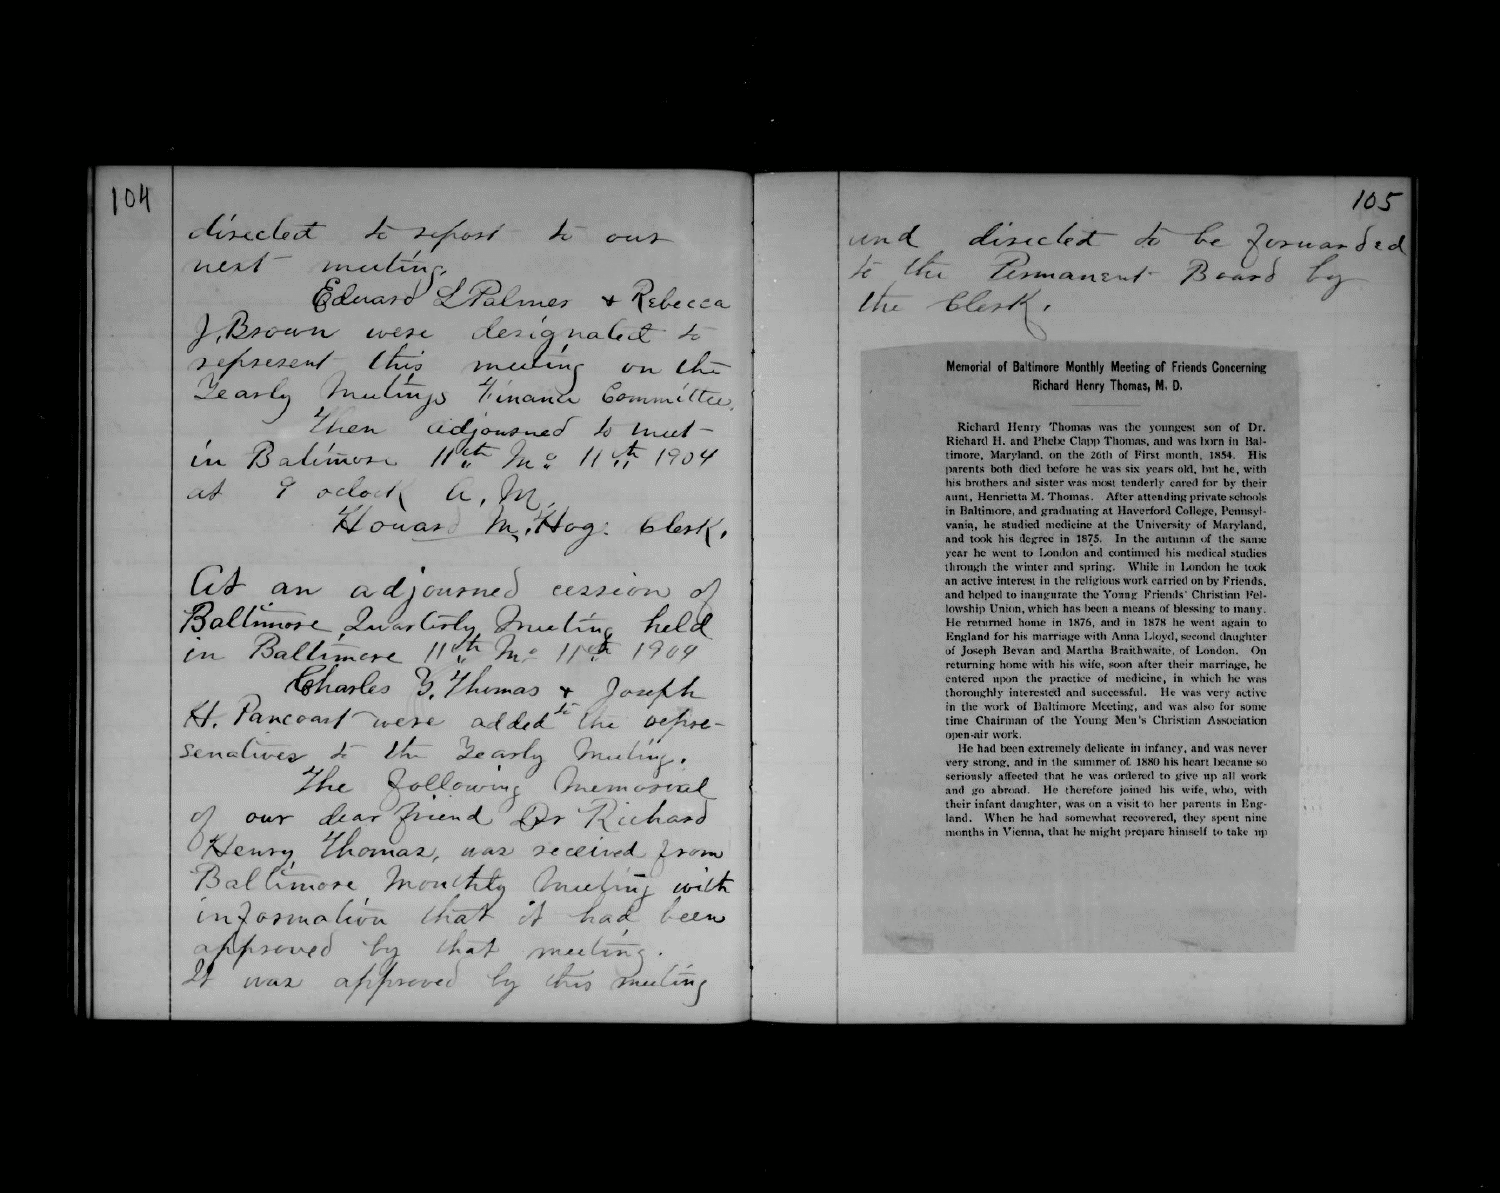 104
directed to report to our
next meeting.
Edward L Palmer & Rebecca
J. Brown were designated to
represent this meeting on the
Yearly Meetings Finance Committee.
Then adjourned to meet
in Baltimore 11th Mo 11th 1904
at 9 oclock A. M.
Howard M. Hog: Clerk.
At an adjourned cession of
Baltimore Quarterly Meeting held
in Baltimore 11th Mo 11th 1904
Charles Y. Thomas & Joseph
H. Pancoast were added to the repre-
senatives to the Yearly Meeting.
The following Memorial
of our dear friend Dr Richard
Henry Thomas, was received from
Baltimore Monthly Meeting with
information that it had been
approved by that meeting.
It was approved by this meeting
105
and directed to be forwarded
to the Permanent Board by
the Clerk.
Memorial of Baltimore Monthly Meeting of Friends Concerning
Richard Henry Thomas, M. D.
Richard Henry Thomas was the youngest son of Dr.
Richard H. and Phebe Clapp Thomas, and was born in Bal-
timore, Maryland, on the 26th of First month, 1854. His
parents both died before he was six years old, but he, with
his brothers and sister was most tenderly cared for by their
aunt, Henrietta M. Thomas. After attending private schools
in Baltimore, and graduating at Haverford College, Pennsyl-
vania, he studied medicine at the University of Maryland,
and took his degree in 1875. In the autumn of the same
year he went to London and continued his medical studies
through the winter and spring. While in London he took
an active interest in the religious work carried on by Friends,
and helped to inaugurate the Young Friends' Christian Fel-
lowship Union, which has been a means of blessing to many.
He returned home in 1876, and in 1878 he went again to
England for his marriage with Anna Lloyd, second daughter
of Joseph Bevan and Martha Braithwaite, of London. On
returning home with his wife, soon after their marriage, he
entered upon the practice of medicine, in which he was
thoroughly interested and successful. He was very active
in the work of Baltimore Meeting, and was also for some
time Chairman of the Young Men's Christian Association
open-air work.
He had been extremely delicate in infancy, and was never
very strong, and in the summer of 1880 his heart became so
seriously affected that he was ordered to give up all work
and go abroad. He therefore joined his wife, who, with
their infant daughter, was on a visit to her parents in Eng-
land. When he had somewhat recovered, they spent nine
months in Vienna, that he might prepare himself to take up